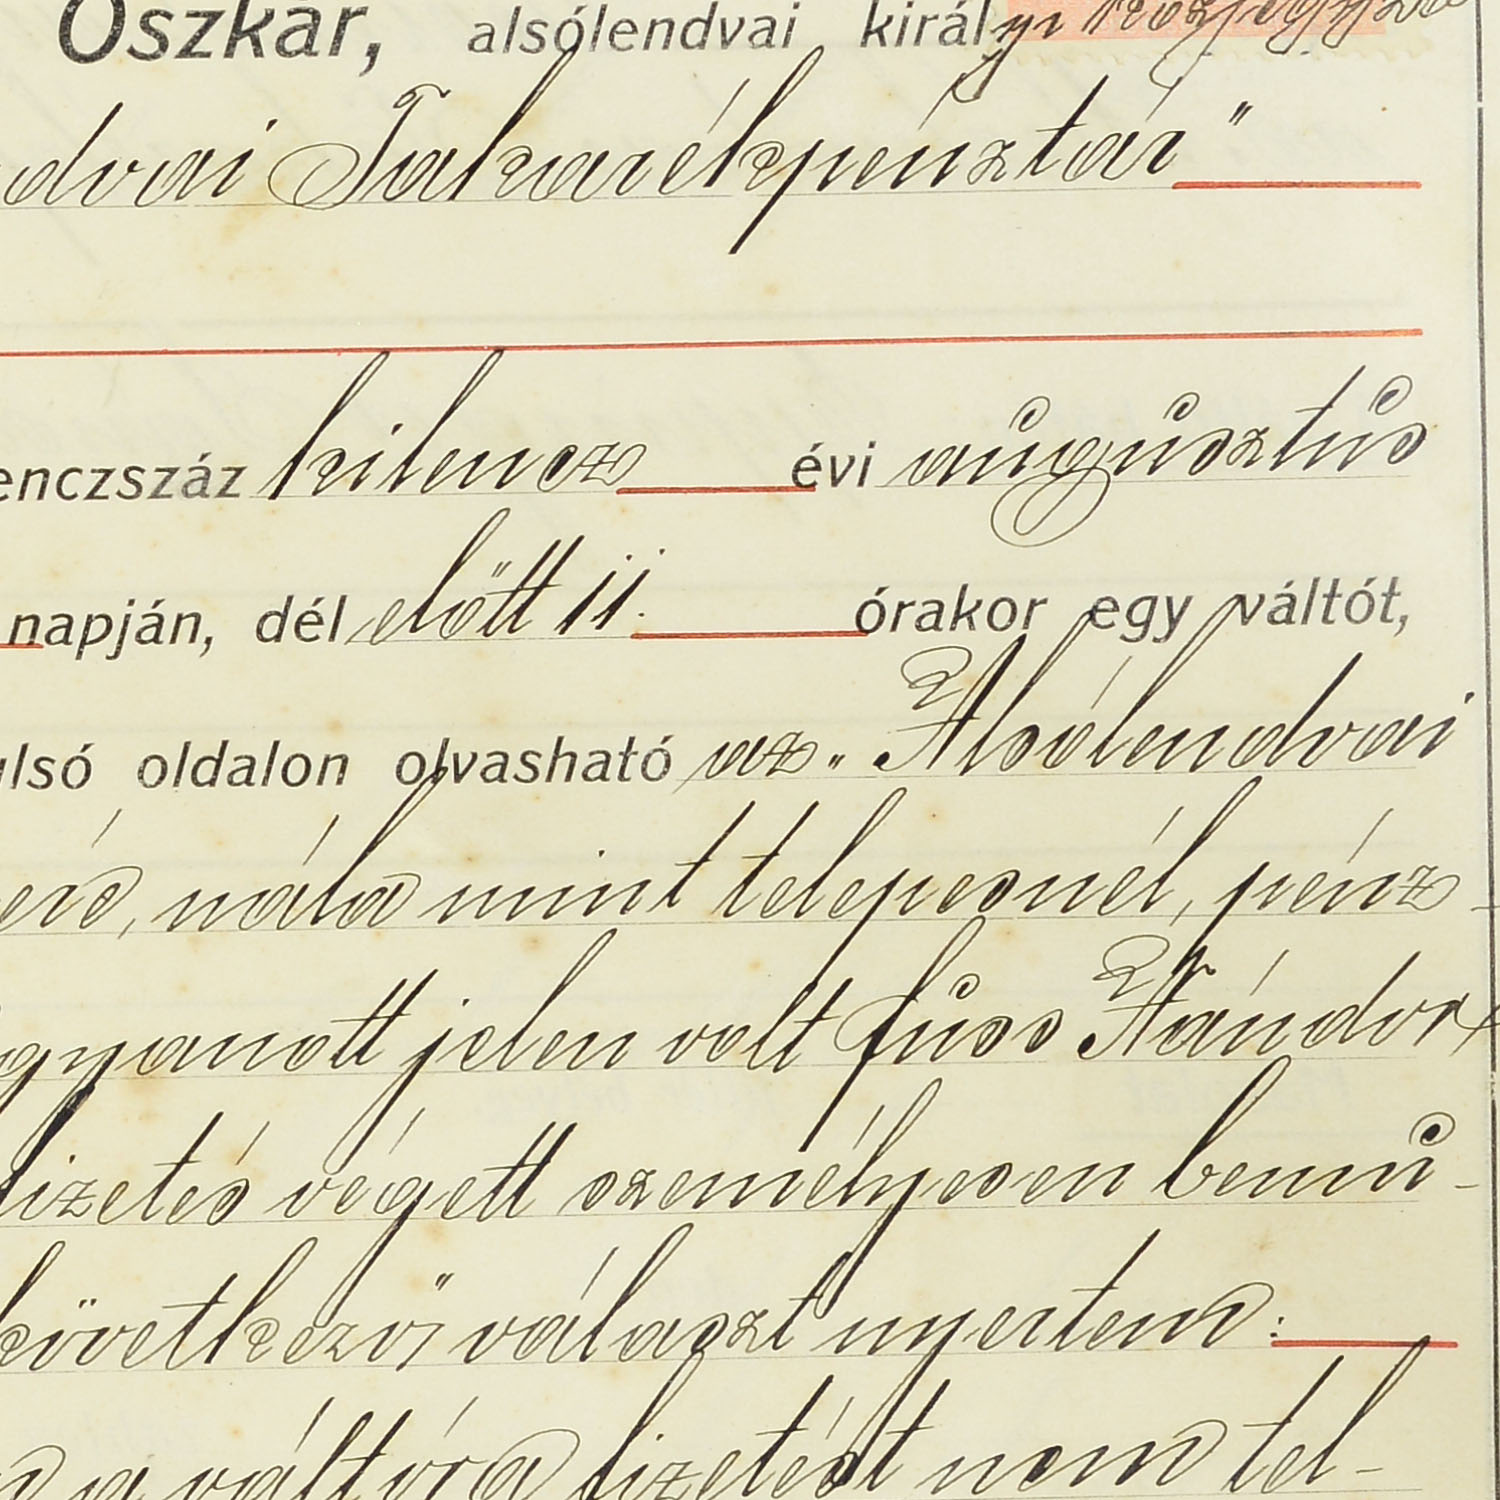 Oszkár, alsólendvai királyi közjegyző
dvai Takarékpénztár"
enczszáz kilencz évi augusztus
napján, dél előtt 11. órakor egy váltót,
ulsó oldalon olvasható az „Alsólendvai
nála mint telepesnél, pénz
gyanott jelen volt fuss Nándor
fizetés végett személyesen bemu-
következő választ nyertem:
a váltóra fizetést nem tel-